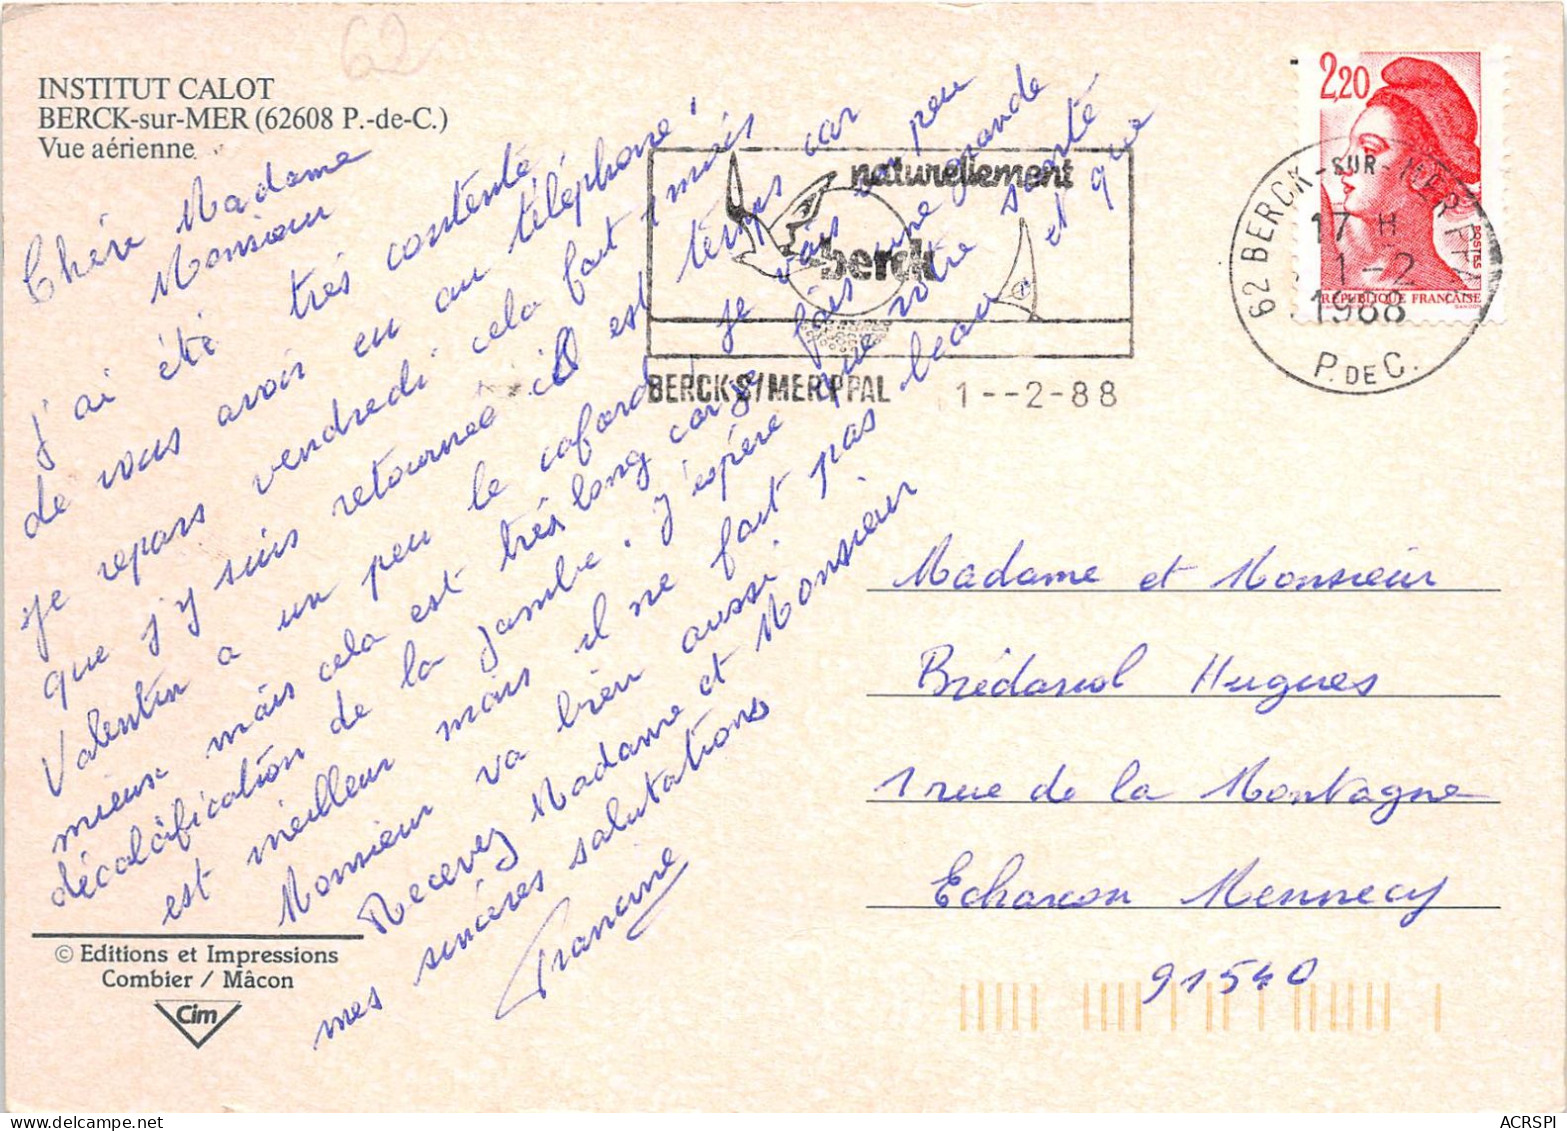 62
INSTITUT CALOT
BERCK-sur-MER (62608 P.-de-C.)
Vue aérienne
Chère Madame
Monsieur
J'ai été très contente
de vous avoir eu au téléphone !
Je repars vendredi cela fait 1 mois
que j'y suis retournée il est temps car
Valentin a un peu le cafard je vais un peu
mieux mais cela est très long car je fais une grande
décalcification de la jambe. J'espère que votre santé
est meilleur mais il ne fait pas beau et que
Monsieur va bien aussi.
Recevez Madame et Monsieur
mes sincères salutations
Francine
© Editions et Impressions
Combier / Mâcon
Cim
naturellement
berck
BERCK S/MER PPAL 1--2-88
2,20
POSTES
RÉPUBLIQUE FRANÇAISE
62 BERCK-SUR-MER PPAL
17 H
1-2
1988
P. DE C.
Madame et Monsieur
Hugues
1 rue de la Montagne
Echarcon Mennecy
91540
ACRSPI